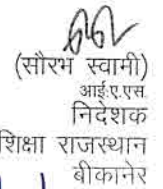 (सौरभ स्वामी)
आई.ए.एस.
निदेशक
शिक्षा राजस्थान
बीकानेर